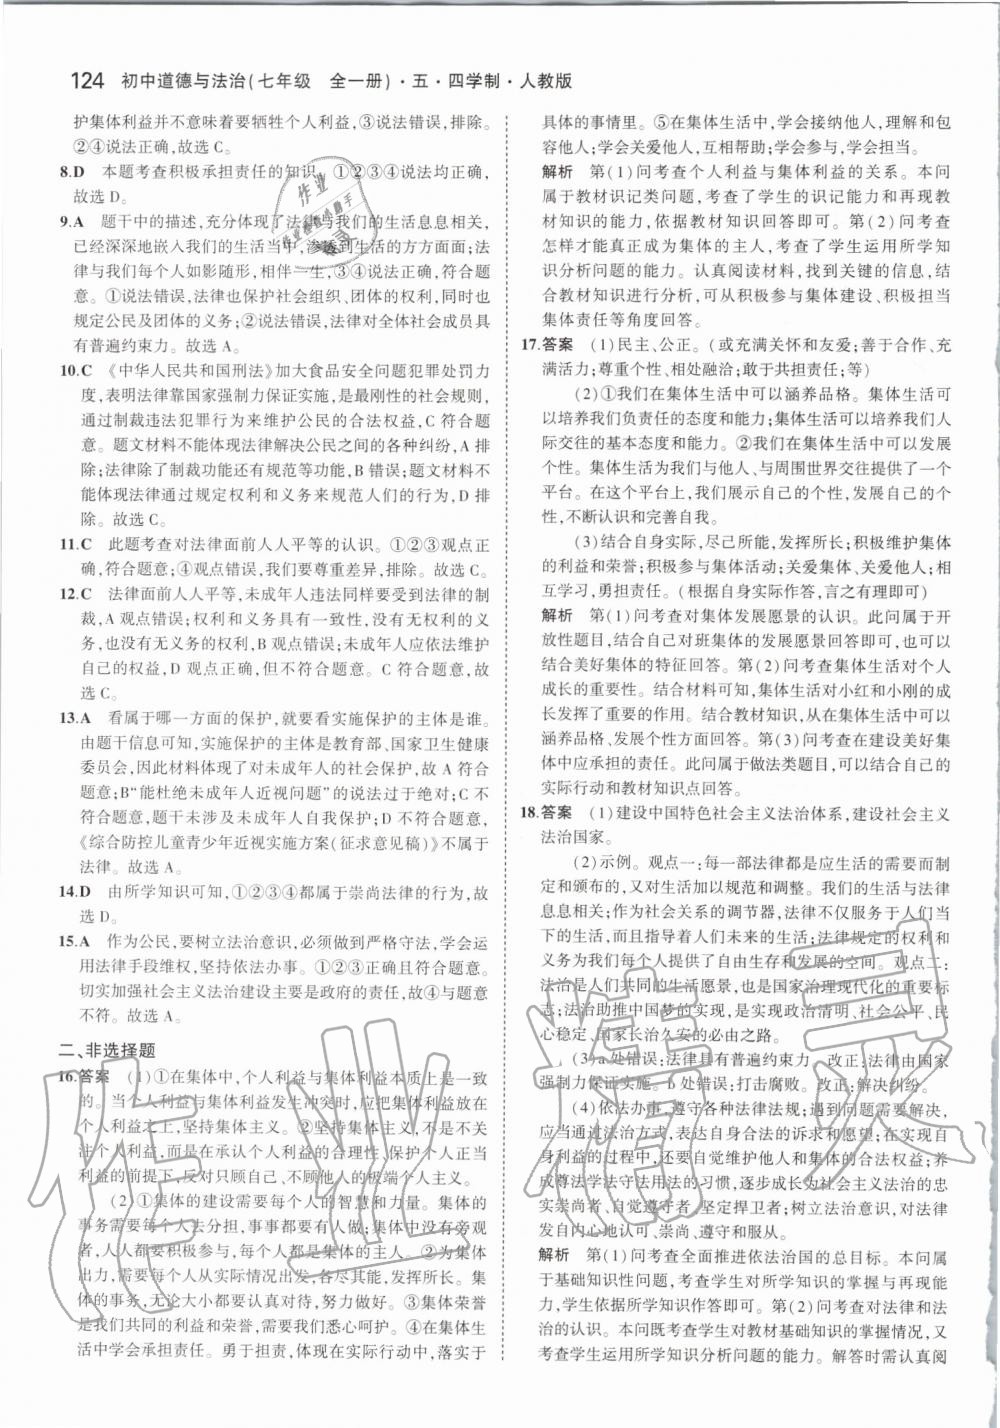 124 初中道德与法治(七年级 全一册)·五·四学制·人教版
护集体利益并不意味着要牺牲个人利益,③说法错误,排除。
②④说法正确,故选C。
8.D 本题考查积极承担责任的知识。①②③④说法均正确,
故选D。
9.A 题干中的描述,充分体现了法律与我们的生活息息相关,
已经深深地嵌入我们的生活当中,渗透到生活的方方面面;法
律与我们每个人如影随形,相伴一生,③④说法正确,符合题
意。①说法错误,法律也保护社会组织、团体的权利,同时也
规定公民及团体的义务;②说法错误,法律对全体社会成员具
有普遍约束力。故选A。
10.C 《中华人民共和国刑法》加大食品安全问题犯罪处罚力
度,表明法律靠国家强制力保证实施,是最刚性的社会规则,
通过制裁违法犯罪行为来维护公民的合法权益,C符合题
意。题文材料不能体现法律解决公民之间的各种纠纷,A排
除;法律除了制裁功能还有规范等功能,B错误;题文材料不
能体现法律通过规定权利和义务来规范人们的行为,D排
除。故选C。
11.C 此题考查对法律面前人人平等的认识。①②③观点正
确,符合题意;④观点错误,我们要尊重差异,排除。故选C。
12.C 法律面前人人平等,未成年人违法同样要受到法律的制
裁,A观点错误;权利和义务具有一致性,没有无义务的权利,
也没有无义务的权利,B观点错误;未成年人应依法维护
自己的权益,D观点正确,但不符合题意。C符合题意,故
选C。
13.A 看属于哪一方面的保护,就要看实施保护的主体是谁。
由题干信息可知,实施保护的主体是教育部、国家卫生健康
委员会,因此材料体现了对未成年人的社会保护,故A符合
题意;B“能杜绝未成年人近视问题”的说法过于绝对;C不
符合题意,题干未涉及未成年人自我保护;D不符合题意,
《综合防控儿童青少年近视实施方案(征求意见稿)》不属于
法律。故选A。
14.D 由所学知识可知,①②③④都属于崇尚法律的行为,故
选D。
15.A 作为公民,要树立法治意识,必须做到严格守法,学会运
用法律手段维权,坚持依法办事。①②③正确且符合题意。
切实加强社会主义法治建设主要是政府的责任,故④与题意
不符。故选A。
二、非选择题
16.答案 (1)①在集体中,个人利益与集体利益本质上是一致
的。当个人利益与集体利益发生冲突时,应把集体利益放在
个人利益之上,坚持集体主义。②坚持集体主义,不是不关
注个人利益,而是在承认个人利益的合理性、保护个人正当
利益的前提下,反对只顾自己、不顾他人的极端个人主义。
(2)①集体的建设需要每个人的智慧和力量。集体的
事务需要大家一起去分担,事事都要有人做;集体中没有旁观
者,人人都要积极参与,每个人都是集体的主人。②为集体出
力,需要每个人从实际情况出发,各尽其能,发挥所长。集
体的事务,无论大小都要认真对待,努力做好。③集体荣誉
是我们共同的利益和荣誉,需要我们悉心呵护。④在集体生
活中学会承担责任。勇于担责,体现在实际行动中,落实于
具体的事情里。⑤在集体生活中,学会接纳他人,理解和包
容他人;学会关爱他人,互相帮助;学会参与,学会担当。
解析 第(1)问考查个人利益与集体利益的关系。本问
属于教材识记类问题,考查了学生的识记能力和再现教
材知识的能力,依据教材知识回答即可。第(2)问考查
怎样才能真正成为集体的主人,考查了学生运用所学知
识分析问题的能力。认真阅读材料,找到关键的信息,结
合教材知识进行分析,可从积极参与集体建设、积极担当
集体责任等角度回答。
17.答案 (1)民主、公正。(或充满关怀和友爱;善于合作、充
满活力;尊重个性、相处融洽;敢于共担责任;等)
(2)①在集体生活中可以涵养品格。集体生活可
以培养我们负责任的态度和能力;集体生活可以培养我们人
际交往的基本态度和能力。②我们在集体生活中可以发展
个性。集体生活为我们与他人、与周围世界交往提供了一个
平台。在这个平台上,我们展示自己的个性,发展自己的个
性,不断认识和完善自我。
(3)结合自身实际,尽己所能,发挥所长;积极维护集体
的利益和荣誉;积极参与集体活动;关爱集体、关爱他人、相
互学习,勇担责任。(根据自身实际作答,言之有理即可)
解析 第(1)问考查对集体发展愿景的认识。此问属于开
放性题目,结合自己对班集体的发展愿景回答即可,也可以
结合美好集体的特征回答。第(2)问考查集体生活对个人
成长的重要性。结合材料可知,集体生活对小红和小刚的成
长发挥了重要的作用。结合教材知识,从在集体生活中可以
涵养品格、发展个性方面回答。第(3)问考查在建设美好集
体中应承担的责任。此问属于做法类题目,可结合自己的
实际行动和教材知识点回答。
18.答案 (1)建设中国特色社会主义法治体系,建设社会主义
法治国家。
(2)示例。观点一:每一部法律都是应生活的需要而制
定和颁布的,又对生活加以规范和调整。我们的生活与法律
息息相关;作为社会关系的调节器,法律不仅服务于人们当
下的生活,而且指导着人们未来的生活;法律规定的权利和
义务为我们每个人提供了自由生存和发展的空间。观点二:
法治是人们共同的生活愿景,也是国家治理现代化的重要标
志;法治助推中国梦的实现,是实现政治清明、社会公平、民
心稳定、国家长治久安的必由之路。
(3)a处错误;法律具有普遍约束力。改正:法律由国家
强制力保证实施。b处错误;打击腐败。改正:解决纠纷。
(4)依法办事,遵守各种法律法规;遇到问题需要解决,
应当通过法治方式,表达自身合法的诉求和愿望;在实现自
身利益的过程中,还要自觉维护他人和集体的合法权益;养
成尊法学法守法用法的习惯,逐步成长为社会主义法治的忠
实崇尚者、自觉遵守者、坚定捍卫者;树立法治意识,对法律
发自内心地认可、崇尚、遵守和服从。
解析 第(1)问考查全面推进依法治国的总目标。本问属
于基础知识性问题,考查学生对所学知识的掌握与再现能
力,依据所学知识作答即可。第(2)问考查对法律和法
治的认识。本问既考查学生对教材基础知识的掌握情况,又
考查学生运用所学知识分析问题的能力。解答时需认真阅
作业精灵